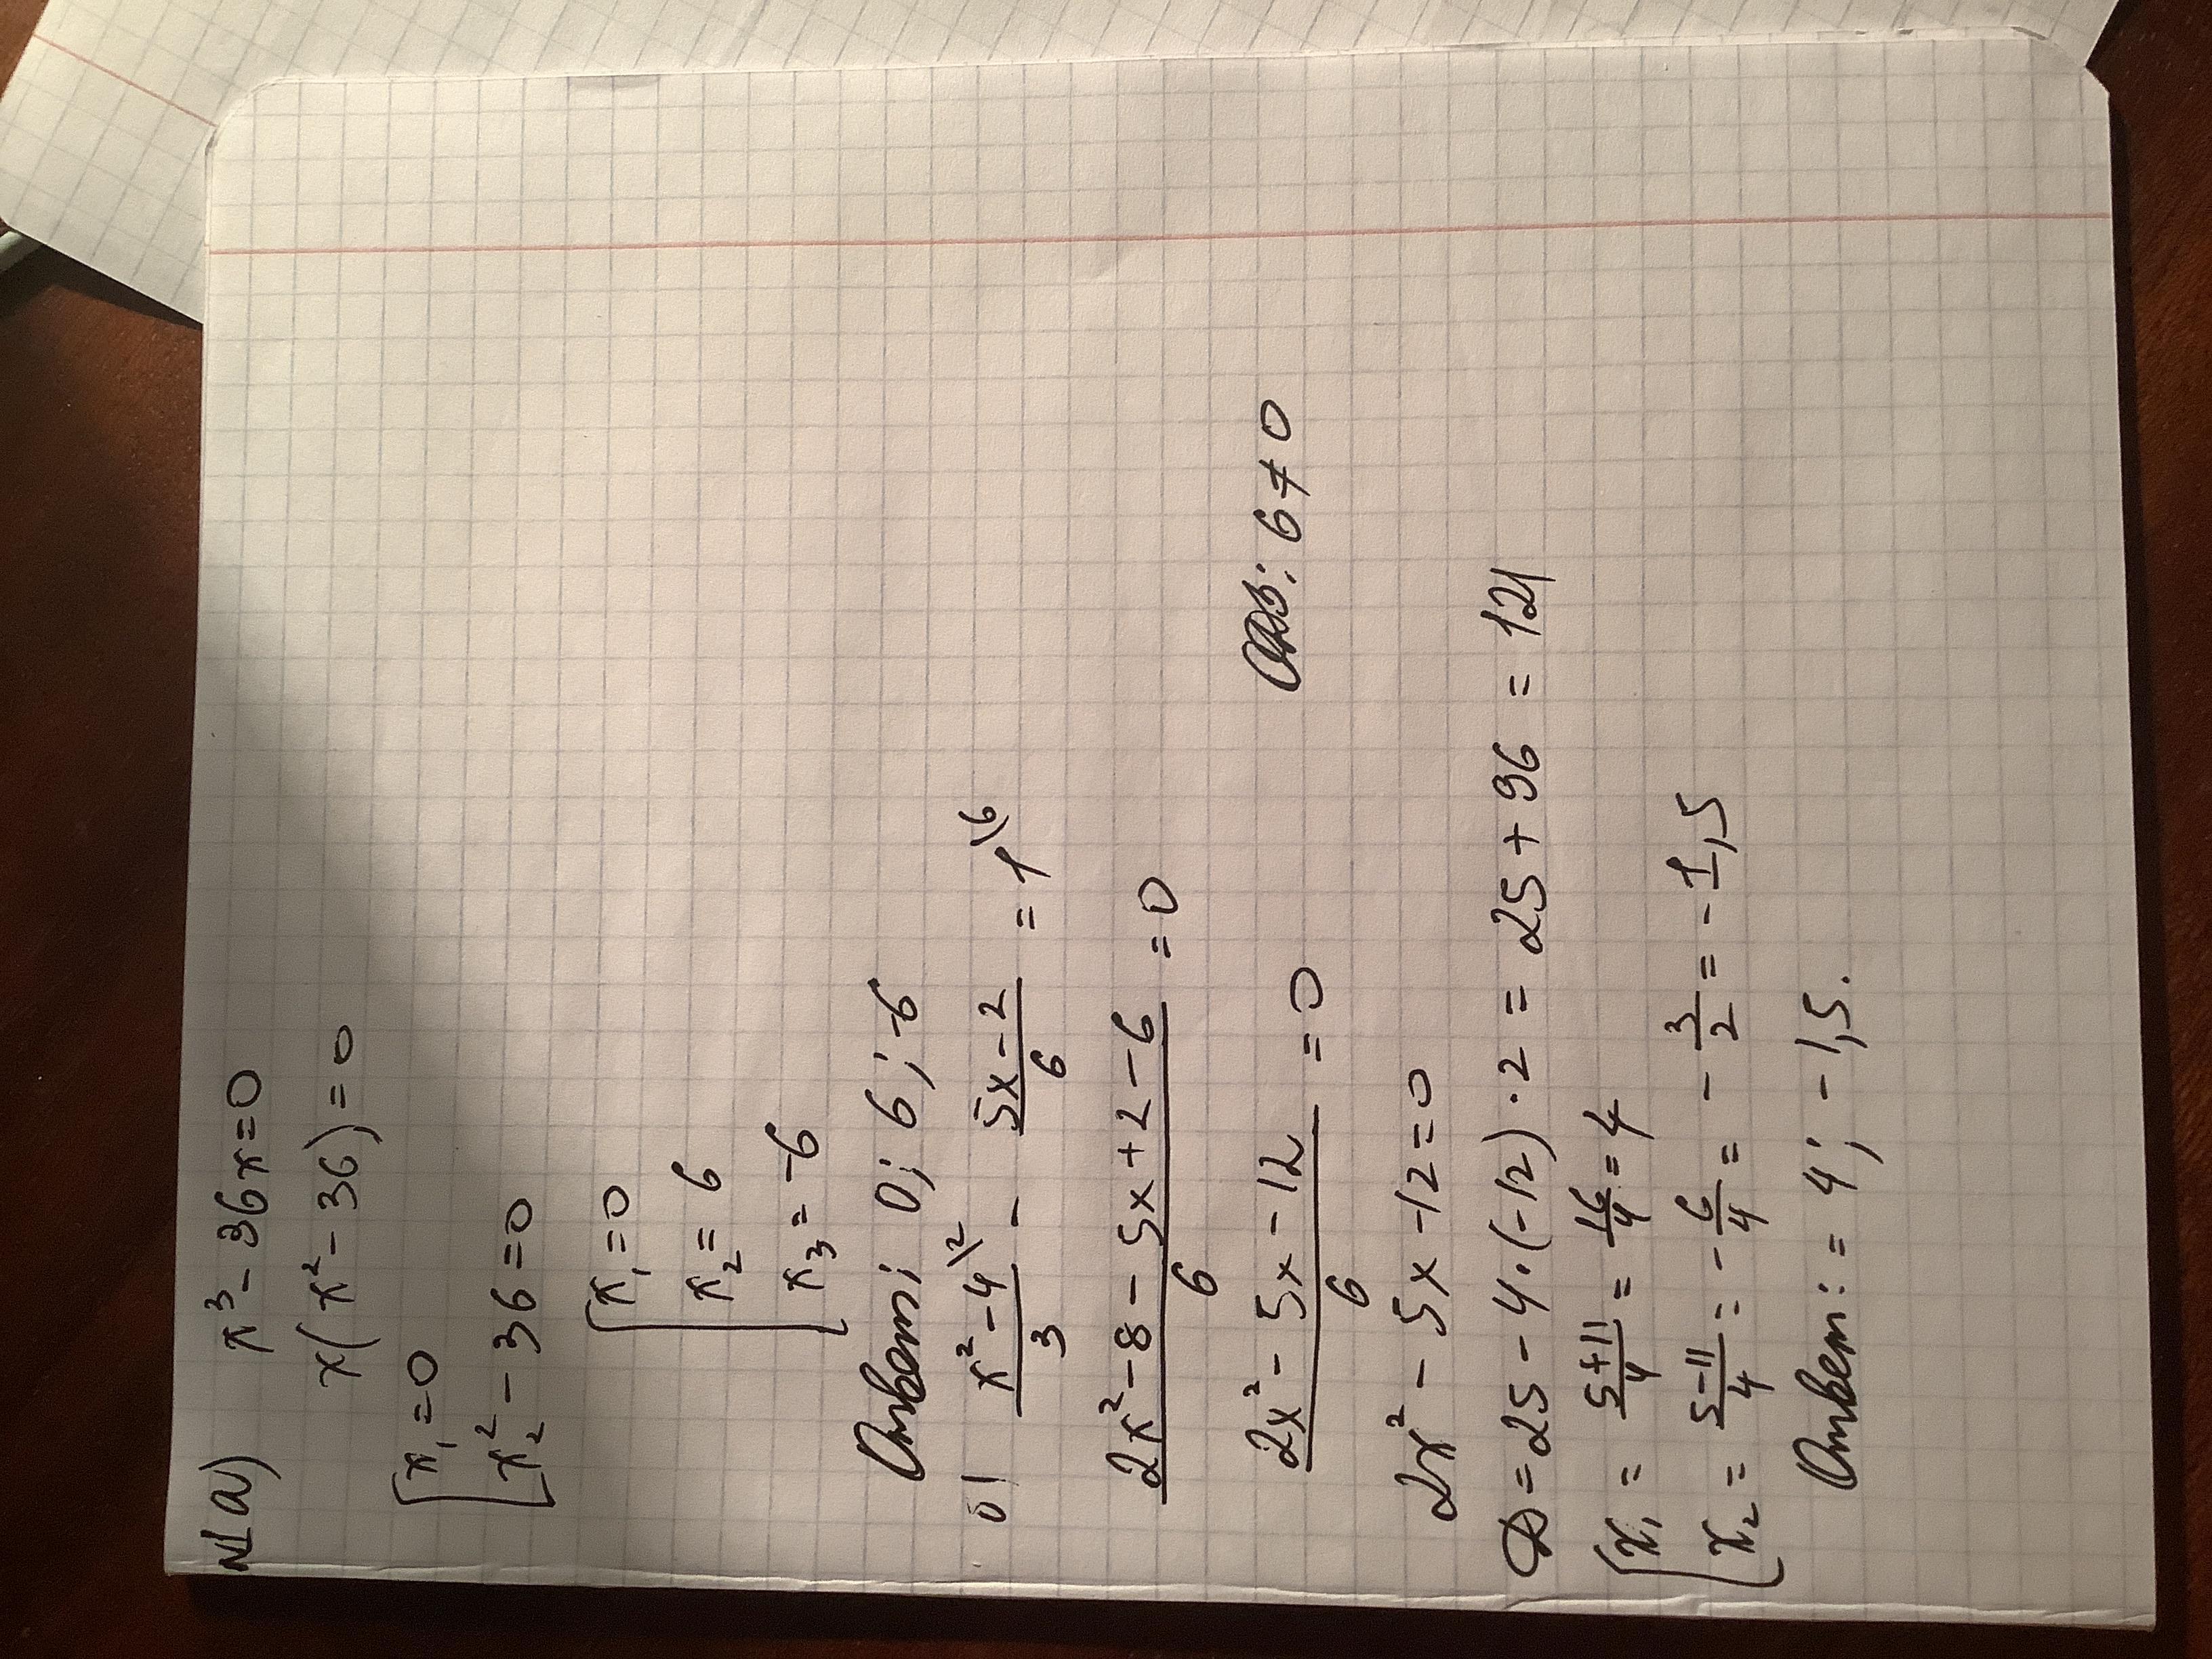 N1 а) x³ - 36x = 0
x(x² - 36) = 0
[ x₁ = 0
x₂² - 36 = 0
[ x₁ = 0
x₂ = 6
x₃ = -6
Ответ: 0; 6; -6
б) (x² - 4)/3 \2 - (5x - 2)/6 = 1 \6
(2x² - 8 - 5x + 2 - 6)/6 = 0
(2x² - 5x - 12)/6 = 0 ОДЗ: 6 ≠ 0
2x² - 5x - 12 = 0
D = 25 - 4·(-12)·2 = 25 + 96 = 121
[ x₁ = (5 + 11)/4 = 16/4 = 4
x₂ = (5 - 11)/4 = -6/4 = -3/2 = -1,5
Ответ: = 4; -1,5.